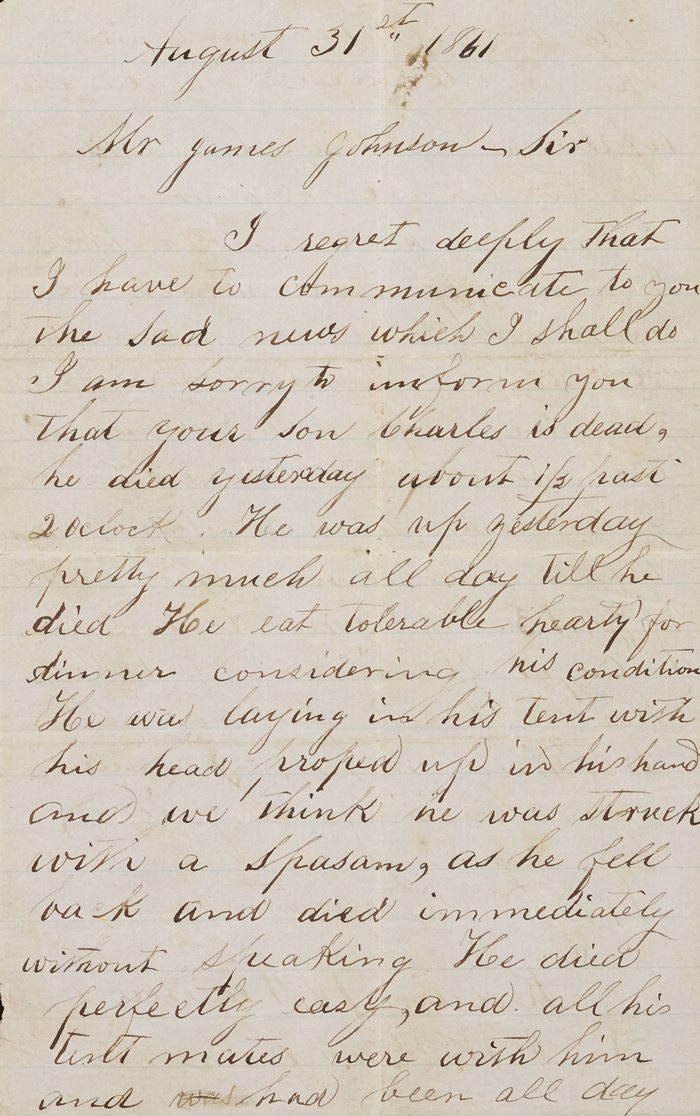 August 31st 1861
Mr James Johnson - Sir
I regret deeply that
I have to communicate to you
the sad news which I shall do
I am sorry to inform you
that your son Charles is dead,
he died yesterday about 1/2 past
2 oclock. He was up yesterday
pretty much all day till he
died He eat tolerable hearty for
dinner considering his condition
He was laying in his tent with
his head proped up in his hand
and we think he was struck
with a spasam, as he fell
back and died immediately
without speaking He died
perfectly easy, and all his
tent mates were with him
and was had been all day